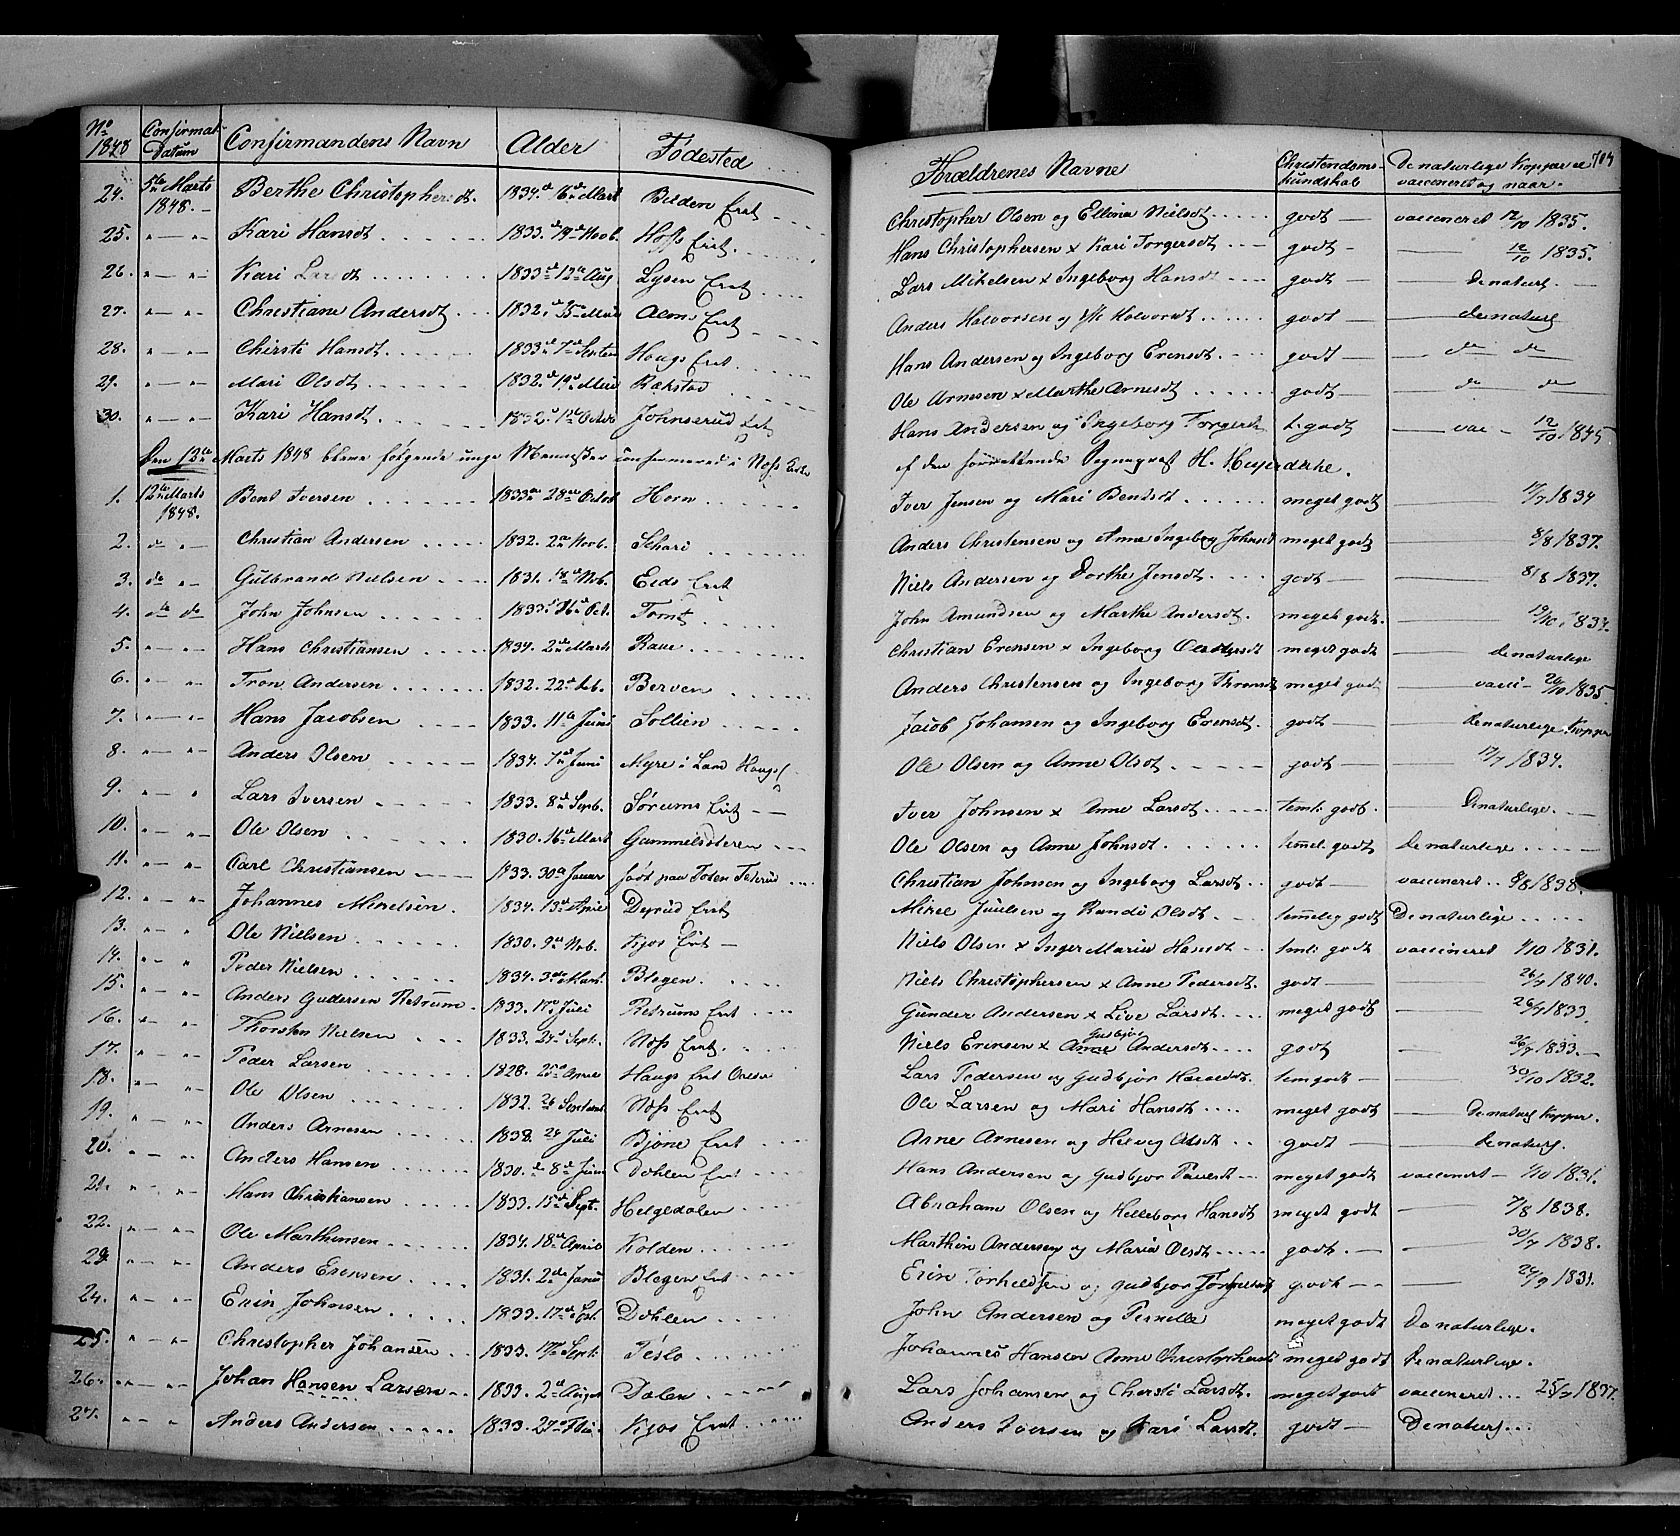 No 1848 Confirmat. Datum Confirmandens Navn Alder Fødested Forældrenes Navne Christendoms kundskab De naturlige Kopper el vaccineret og naar. 704
24. 5te Marts 1848. Berthe Christophersdt. 1834. 16 Mart Bilden Eiet Christopher Olsen og Ellina Nielsdt godt vaccineret 12/10 1835.
25. Kari Hansdt 1833. 19 Novb. Hofs Eiet Hans Christophersen x Kari Torgersdt godt 12/10 1835.
26. Kari Larsdt 1833 12te Aug Lysen Eiet Lars Mikelsen x Ingeborg Hansdt godt De naturl.
27. Christiane Andersdt 1832. Alm Eiet Anders Halvorsen og Halvorsdt godt De naturlg
28. Chirsti Hansdt 1833 7 Septer Haugs Eiet Hans Andersen og Ingeborg Erensdt godt do do
29. Mari Olsdt 1832. 19 Rækstad Ole Arnesen x Marthe Arnesdt godt do do
30. Kari Hansdt 1832. Octbr Johnserud Eiet Hans Andersen og Ingeborg Torgersdt t. godt vac 12/10 1845.
Den 12te Marts 1848 bleve følgende unge Mennesker confirmered i Nøss Kirke af den forrettende Sognepræst H. Heyerdahl.
1. 12te Marts 1848. Bent Iversen 1833 28 Octbr Horn Iver Jensen og Mari Bentsdt meget godt 17/7 1834
2. do Christian Andersen 1832. 2 Novb. Schari Anders Christensen og Anne Ingeborg Johnsdt meget godt 8/8 1837.
3. do Gulbrand Nielsen 1831. 18 Nob. Eids Eiet Niels Andersen og Dorthe Jensdt godt 8/8 1837.
4. do do John Johnsen 1833. 16 Oct. Tomt John Amundsen og Marthe Andersdt meget godt. 19/10 1834.
5. Hans Christiansen 1834. 2 Marts Raue Christian Erensen x Ingeborg meget godt De naturlige
6. Tron Andersen 1832. 22 Feb. Berven Anders Christensen og Ingeborg Thronsdt meget godt vacci 1835
7. Hans Jacobsen 1833. 11 Juni Sollien Jacob Johansen og Ingeborg Erensdt godt De naturlige Kopper
8. Anders Olsen 1834. 7 Juni Myre i Land Haugs Ole Olsen og Anne Olsdt godt 17/7 1834.
9. Lars Iversen 1833. 8 Septb. Sørums Eiet Iver Johnsen x Anne Larsdt temli. godt. De naturlige.
10. Ole Olsen 1830. 16 Mart Gammelsæteren Ole Olsen og Anne Johnsdt temel. godt De naturlige
11. Carl Christiansen 1833. 30 Januar født paa Toten Christian Johnsen og Ingeborg Larsdt godt vaccineret 8/8 1838.
12. Johannes Mikelsen 1834. 13 April Degrud Eiet Mikel Juulsen og Randi Olsdt temmelig godt De naturlige
13. Ole Nielsen 1830. 9 Nob. Kjos Eiet Niels Olsen x Inger Maria Hansdt temli godt vaccineret 1/10 1831.
14. Peder Nielsen 1834. 3 Mart Blegen Niels Christophersen x Anne Pedersdt godt 26/7 1840.
15. Anders Gudersen Retrum 1833. 17 Juli Retrums Eiet Gunder Andersen x Live Larsdt meget godt 26/7 1833.
16. Thorsten Nielsen 1833. 24 Sept. Nøss Eiet Niels Erensen x Gudbjør Andersdt godt 26/7 1833.
17. Peder Larsen 1828. 25 April Haugs Eiet Lars Pedersen og Gudbjør temgodt 30/10 1832.
18. Ole Olsen 1832. 26 Septemb Nøss Eiet Ole Larsen og Mari Hansdt meget godt De naturlg Kopper.
19. Anders Arnesen 1838. 24 Juli Bjøne Eiet Arne Arnesen og Helvig Olsdt godt De naturlg.
20. Anders Hansen 1830. 8 Juni Dohlen Eiet Hans Andersen og Gudbjør Paulsdt meget godt vaccineret 1/10 1831.
21. Hans Christiansen 1833. 15 Sept. Helgedalen Abraham Olsen og Helleborg Hansdt meget godt 7/8 1838.
22. Ole Marthinsen 1834. 18 April Kolden Marthin Andersen og Maria Olsdt godt. 30/7 1838.
23. Anders Erensen 1831. 2 Juni Blegen Eiet Erin Torkildsen og Gudbjør godt 24/9 1831.
24. Erin Johnsen 1833. 17 Dohlen John Andersen og Pernelle meget godt De naturlige.
25. Christopher Johansen 1833. Sept. Teslo Johannes Hansen Anne Christophersdt meget godt De naturlige.
26. Johan Hansen Larsen 1833. 2 August Dalen Lars Johansen og Chersti Larsdt. meget godt vaccineret 25/7 1837.
27. Anders Andersen 1833. 27 Kjos Eiet Anders Iversen og Kari Larsdt. godt De naturlg